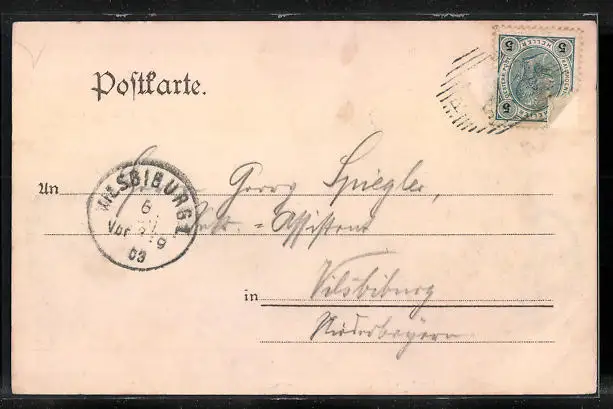 5 HELLER 5
Postkarte.
An Georg Spiegler,
Assistent
in Vilsbiburg
Niederbayern
VILSBIBURG 1
6
Vor. 8-9
03